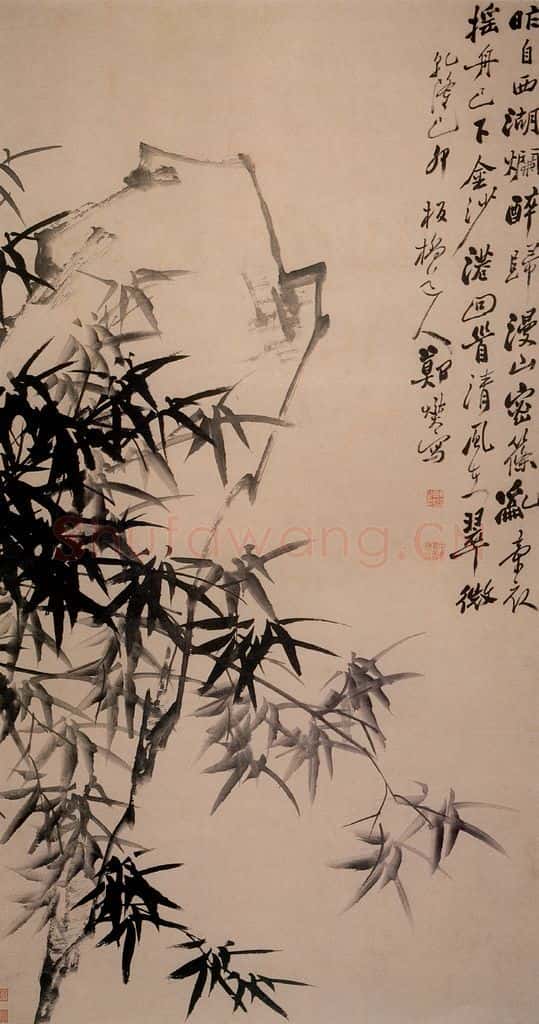 昨自西湖爛醉歸漫山密篠亂牽衣
搖舟已下金沙港回首清風在翠微
乾隆己卯板橋道人鄭燮寫
Shufawang.CN